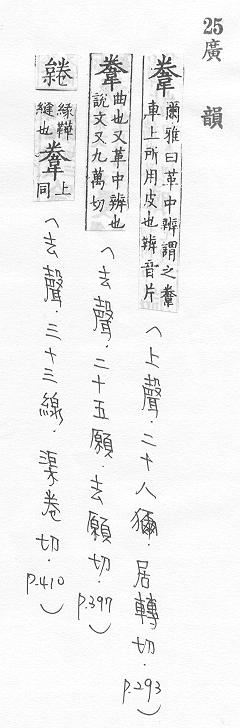 25廣 韻
韏 爾雅曰革中辨謂之韏車上所用皮也辨音片(上聲.二十八獮.居轉切.p.293)
韏 曲也又革中辨也說文又九萬切(去聲.二十五願.去願切.p.397)
綣 緣鞾縫也韏上同(去聲.三十三線.渠卷切.p.410)